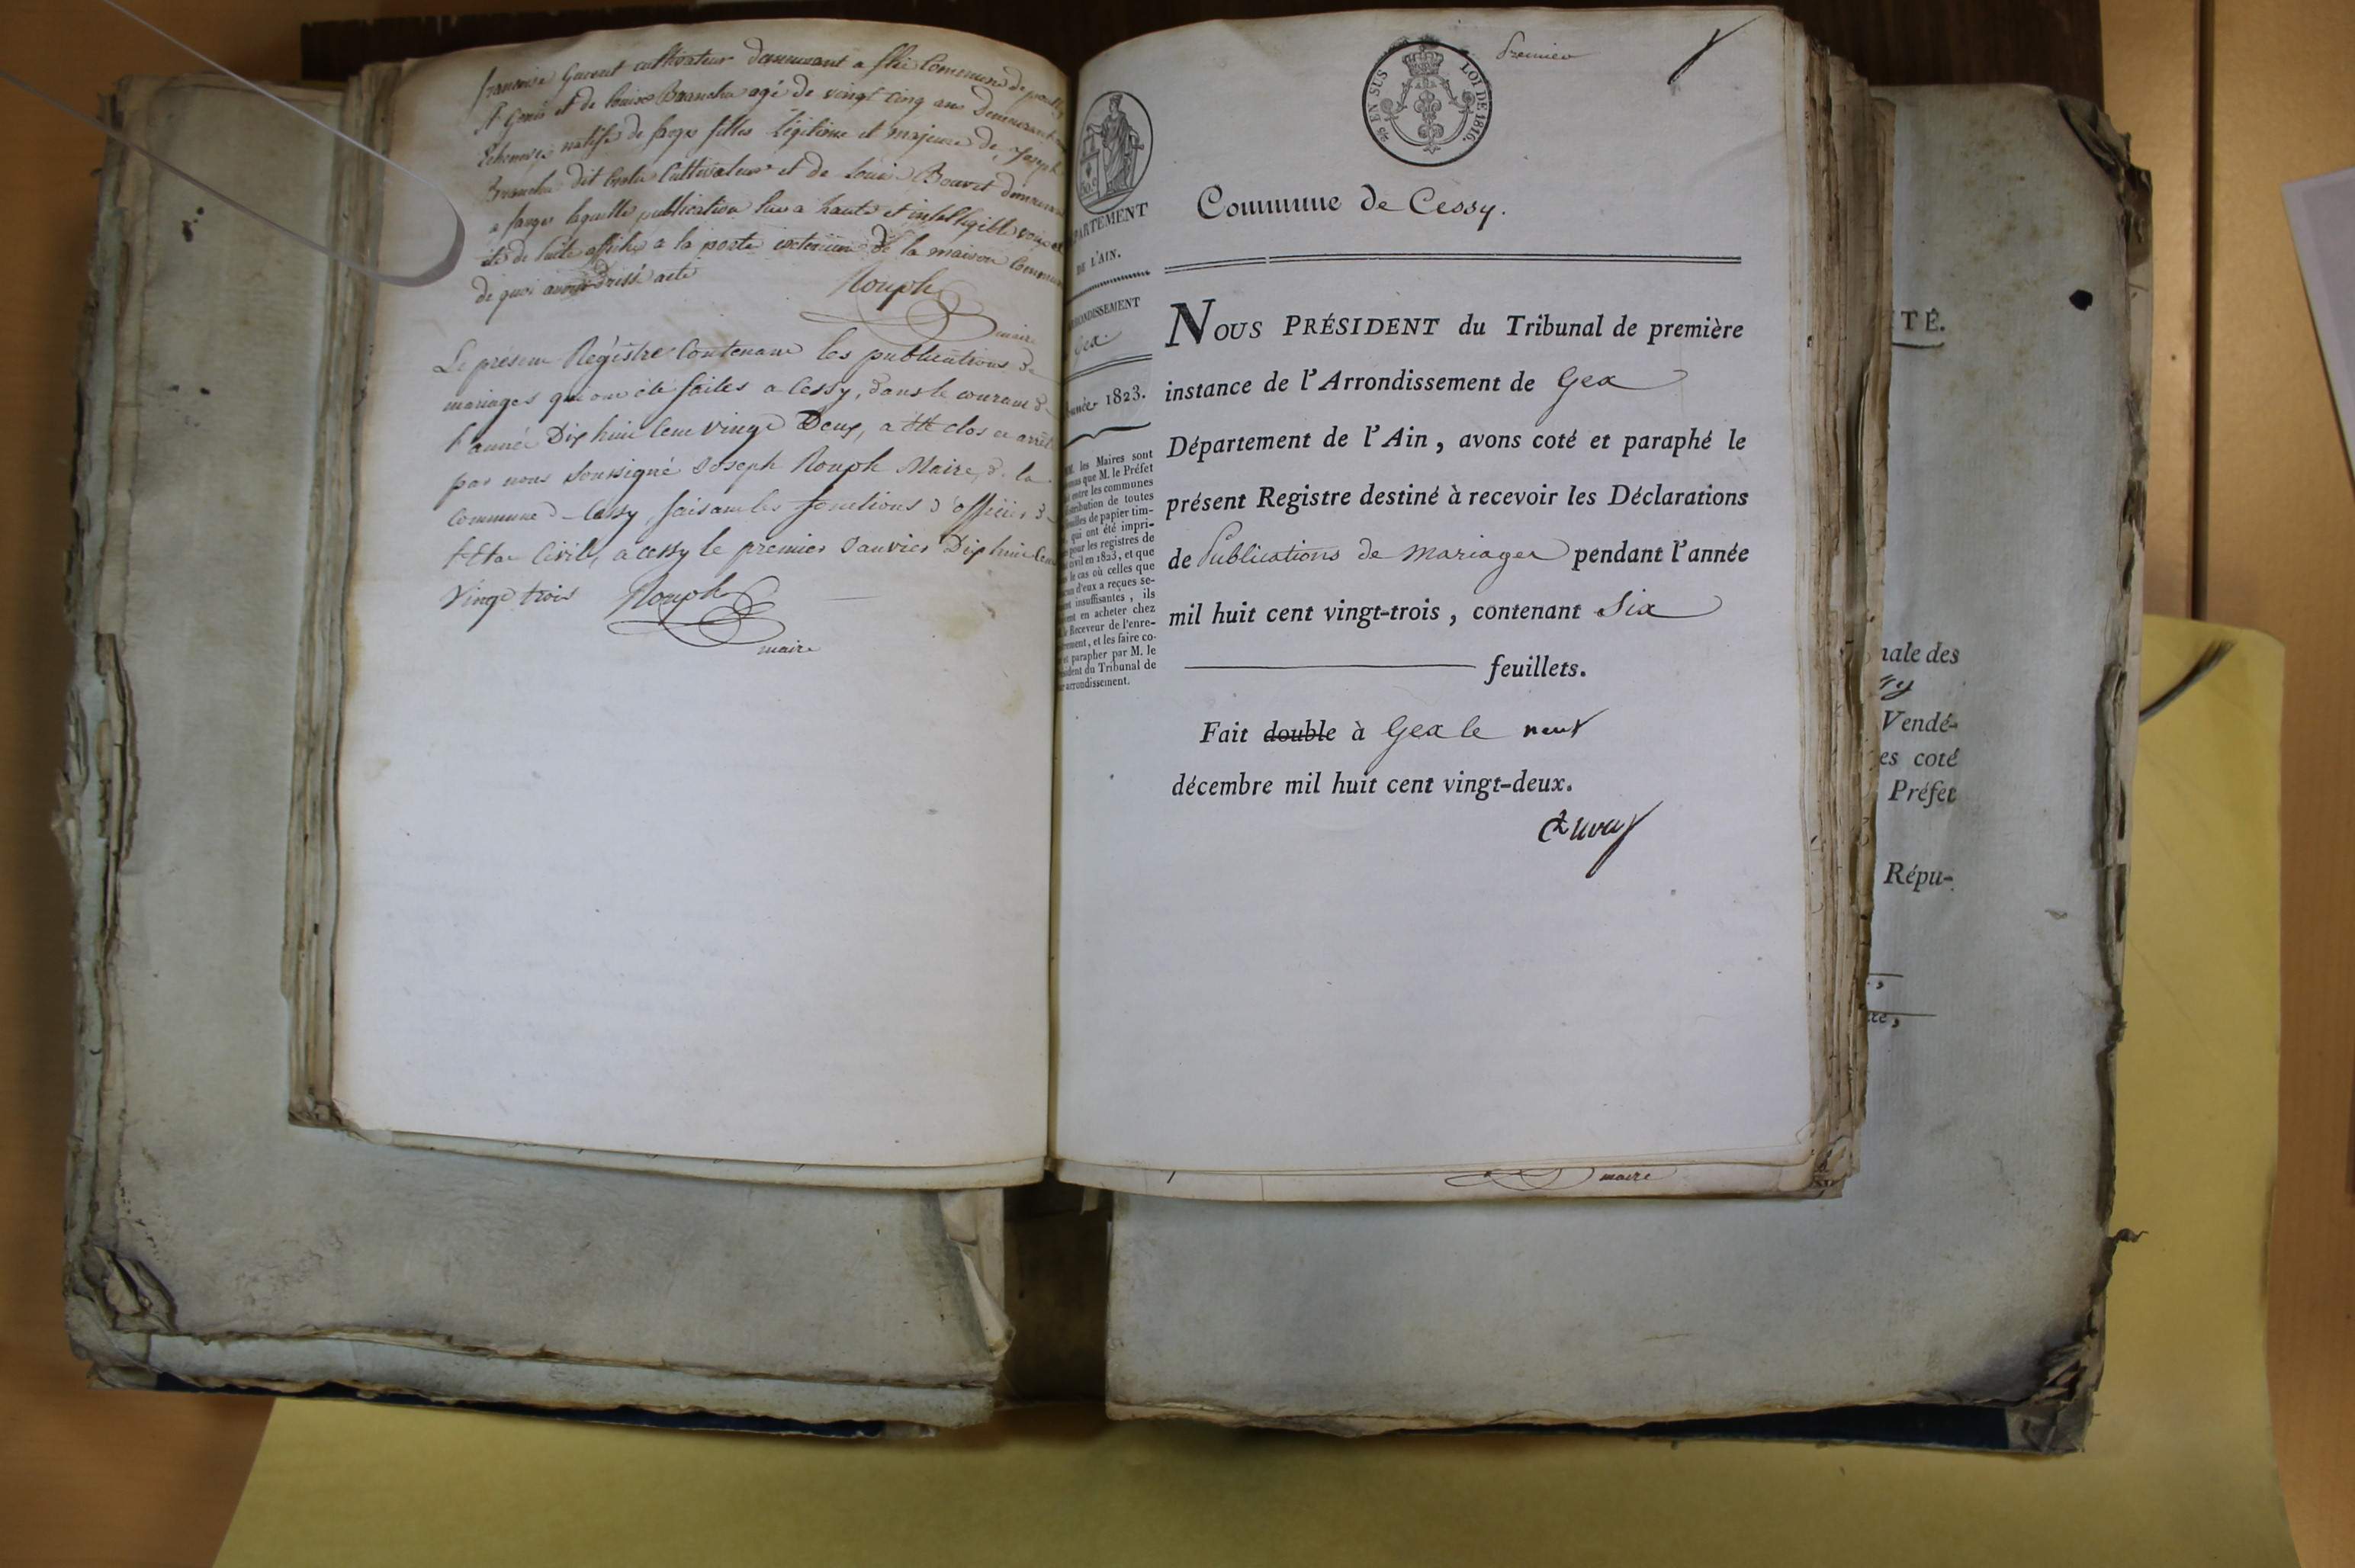 françoise Gavend cultivateur demeurant a flie Commune de pouilly
St Genis et de louise Branchu agé de vingt cinq ans demeurant
Echenevex native de farges filles légitime et majeure de Joseph
Branchu dit cultivateur et de Bouvet demeurant
a farges laquelle publication lue a haute et intelligible voix et
été de suite affiché a la porte exterieure de la maison Commune
de quoi avons dressé acte
Rouph
maire
Le présent Régistre Contenant les publications de
mariages qui ont été faites a Cessy, dans le courant de
l'année Dix huit Cent vingt Deux, a été clos et arrêté
par nous soussigné Joseph Rouph Maire, de la
Commune de Cessy, faisant les fonctions d'officier de
l'Etat Civil, a cessy le premier Janvier Dix huit Cent
Vingt trois Rouph
maire
Premier
EN SUS LOI DE 1816.
PARTEMENT
DE L'AIN.
RONDISSEMENT
Gex
1823.
MM. les Maires sont
que M. le Préfet
entre les communes
distribution de toutes
feuilles de papier tim-
qui ont été impri-
pour les registres de
civil en 1823, et que
le cas où celles que
d'eux a reçues se-
insuffisantes, ils
en acheter chez
le Receveur de l'enre-
, et les faire co-
et parapher par M. le
du Tribunal de
arrondissement.
Commune de Cessy.
NOUS PRÉSIDENT du Tribunal de première
instance de l'Arrondissement de Gex
Département de l'Ain, avons coté et paraphé le
présent Registre destiné à recevoir les Déclarations
de Publications de Mariages pendant l'année
mil huit cent vingt-trois, contenant Six
feuillets.
Fait double à Gex le neuf
décembre mil huit cent vingt-deux.
maire
TÉ.
nale des
Vendé-
es coté
Préfet
Répu-